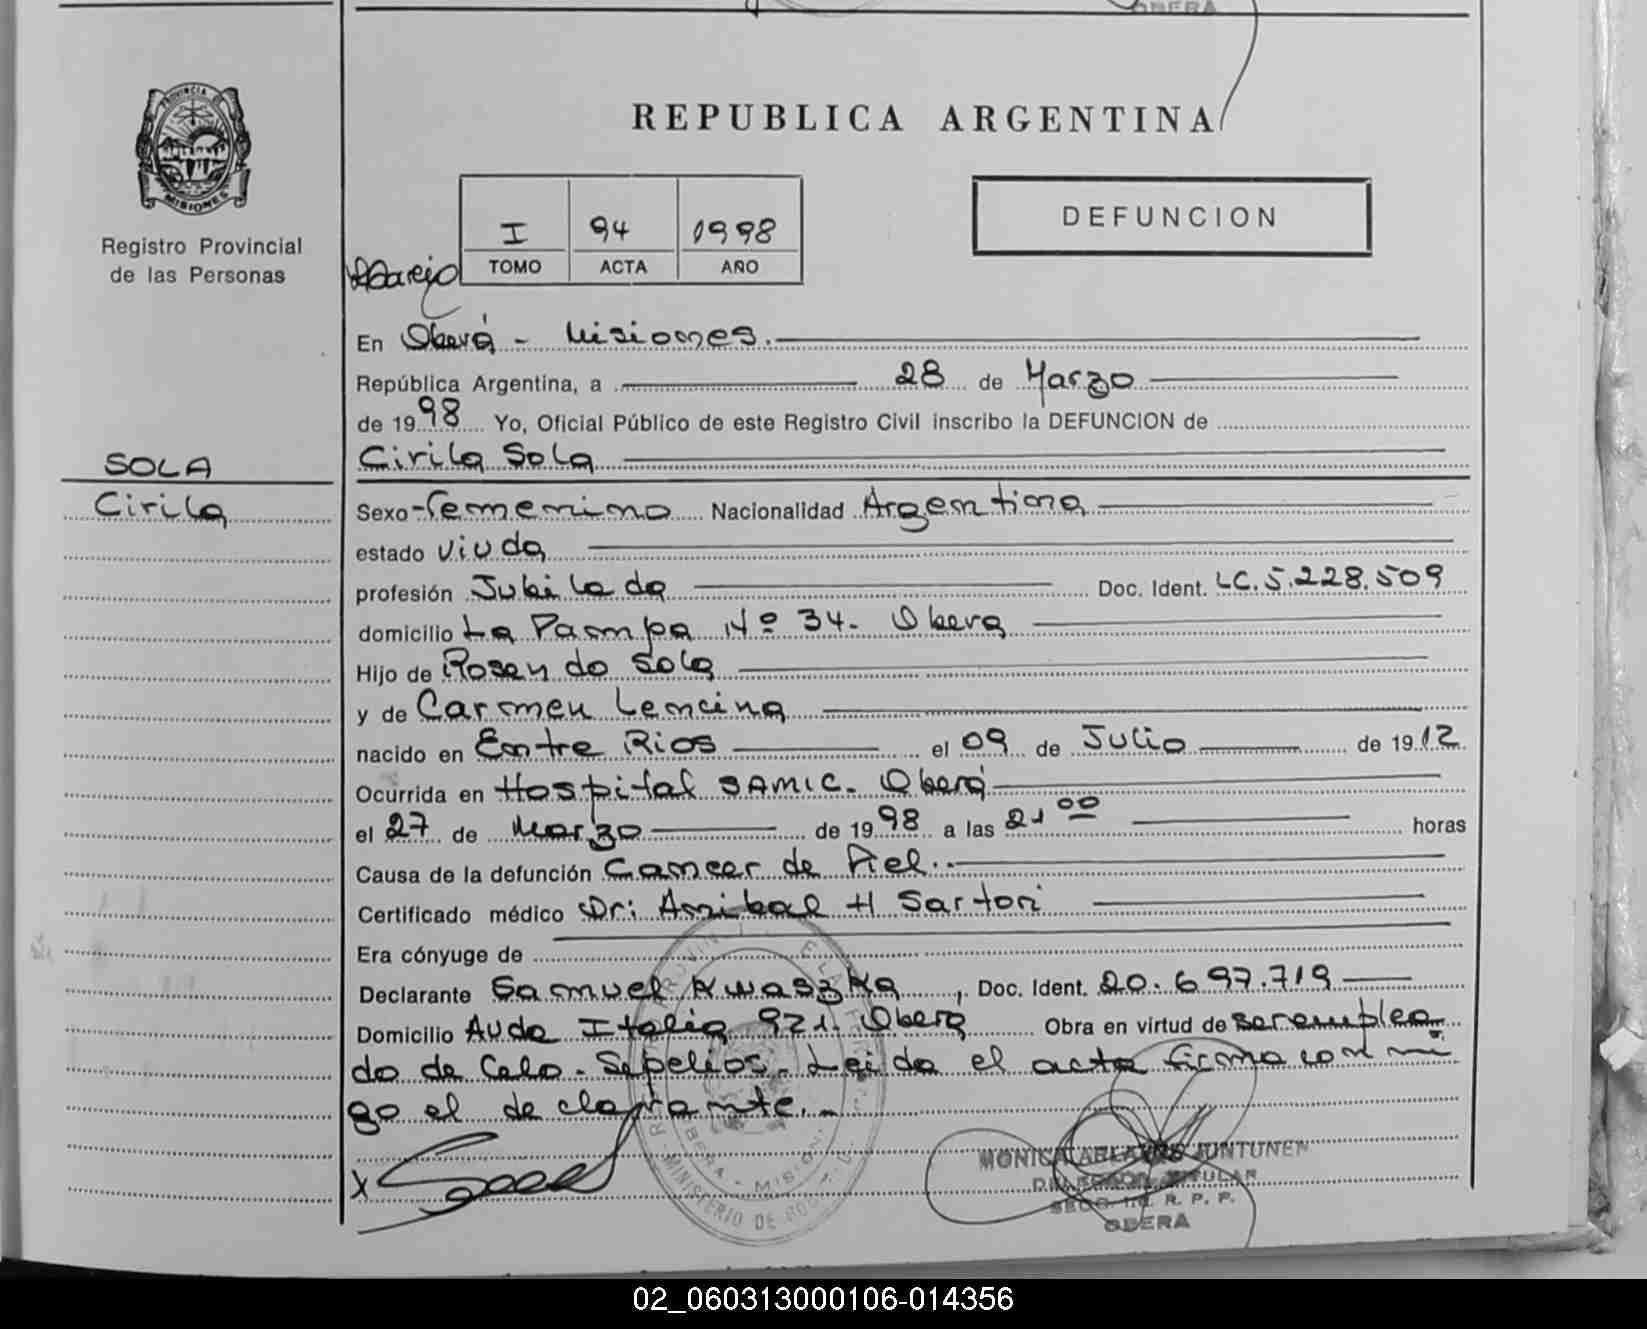 OBERA
PROVINCIA DE
MISIONES
Registro Provincial
de las Personas
REPUBLICA ARGENTINA
I 94 1998
TOMO ACTA AÑO
DEFUNCION
En Oberá - Misiones.
República Argentina, a 28 de Marzo
de 1998 Yo, Oficial Público de este Registro Civil inscribo la DEFUNCION de
SOLA
Cirila Sola
Cirila
Sexo Femenino Nacionalidad Argentina
estado viuda
profesión Jubilada Doc. Ident. LC. 5.228.509
domicilio La Pampa Nº 34. Obera
Hijo de Rosendo Sola
y de Carmen Lencina
nacido en Entre Rios el 09 de Julio de 1912
Ocurrida en Hospital SAMIC. Oberá
el 27 de Marzo de 1998 a las 21 00 horas
Causa de la defunción Cancer de Piel.-
Certificado médico Dr: Anibal H Sartori
Era cónyuge de
Declarante Samuel Kwaszka, Doc. Ident. 20.697.719
Domicilio Avda Italia 921. Obera Obra en virtud de ser emplea
do de Celo. Sepelios. Leida el acta firma con mi
go el declarante.-
X
OBERA - MISIONES
MINISTERIO DE GOB
MONICA JUNTUNEN
TITULAR
R. P. P.
OBERA
02_060313000106-014356